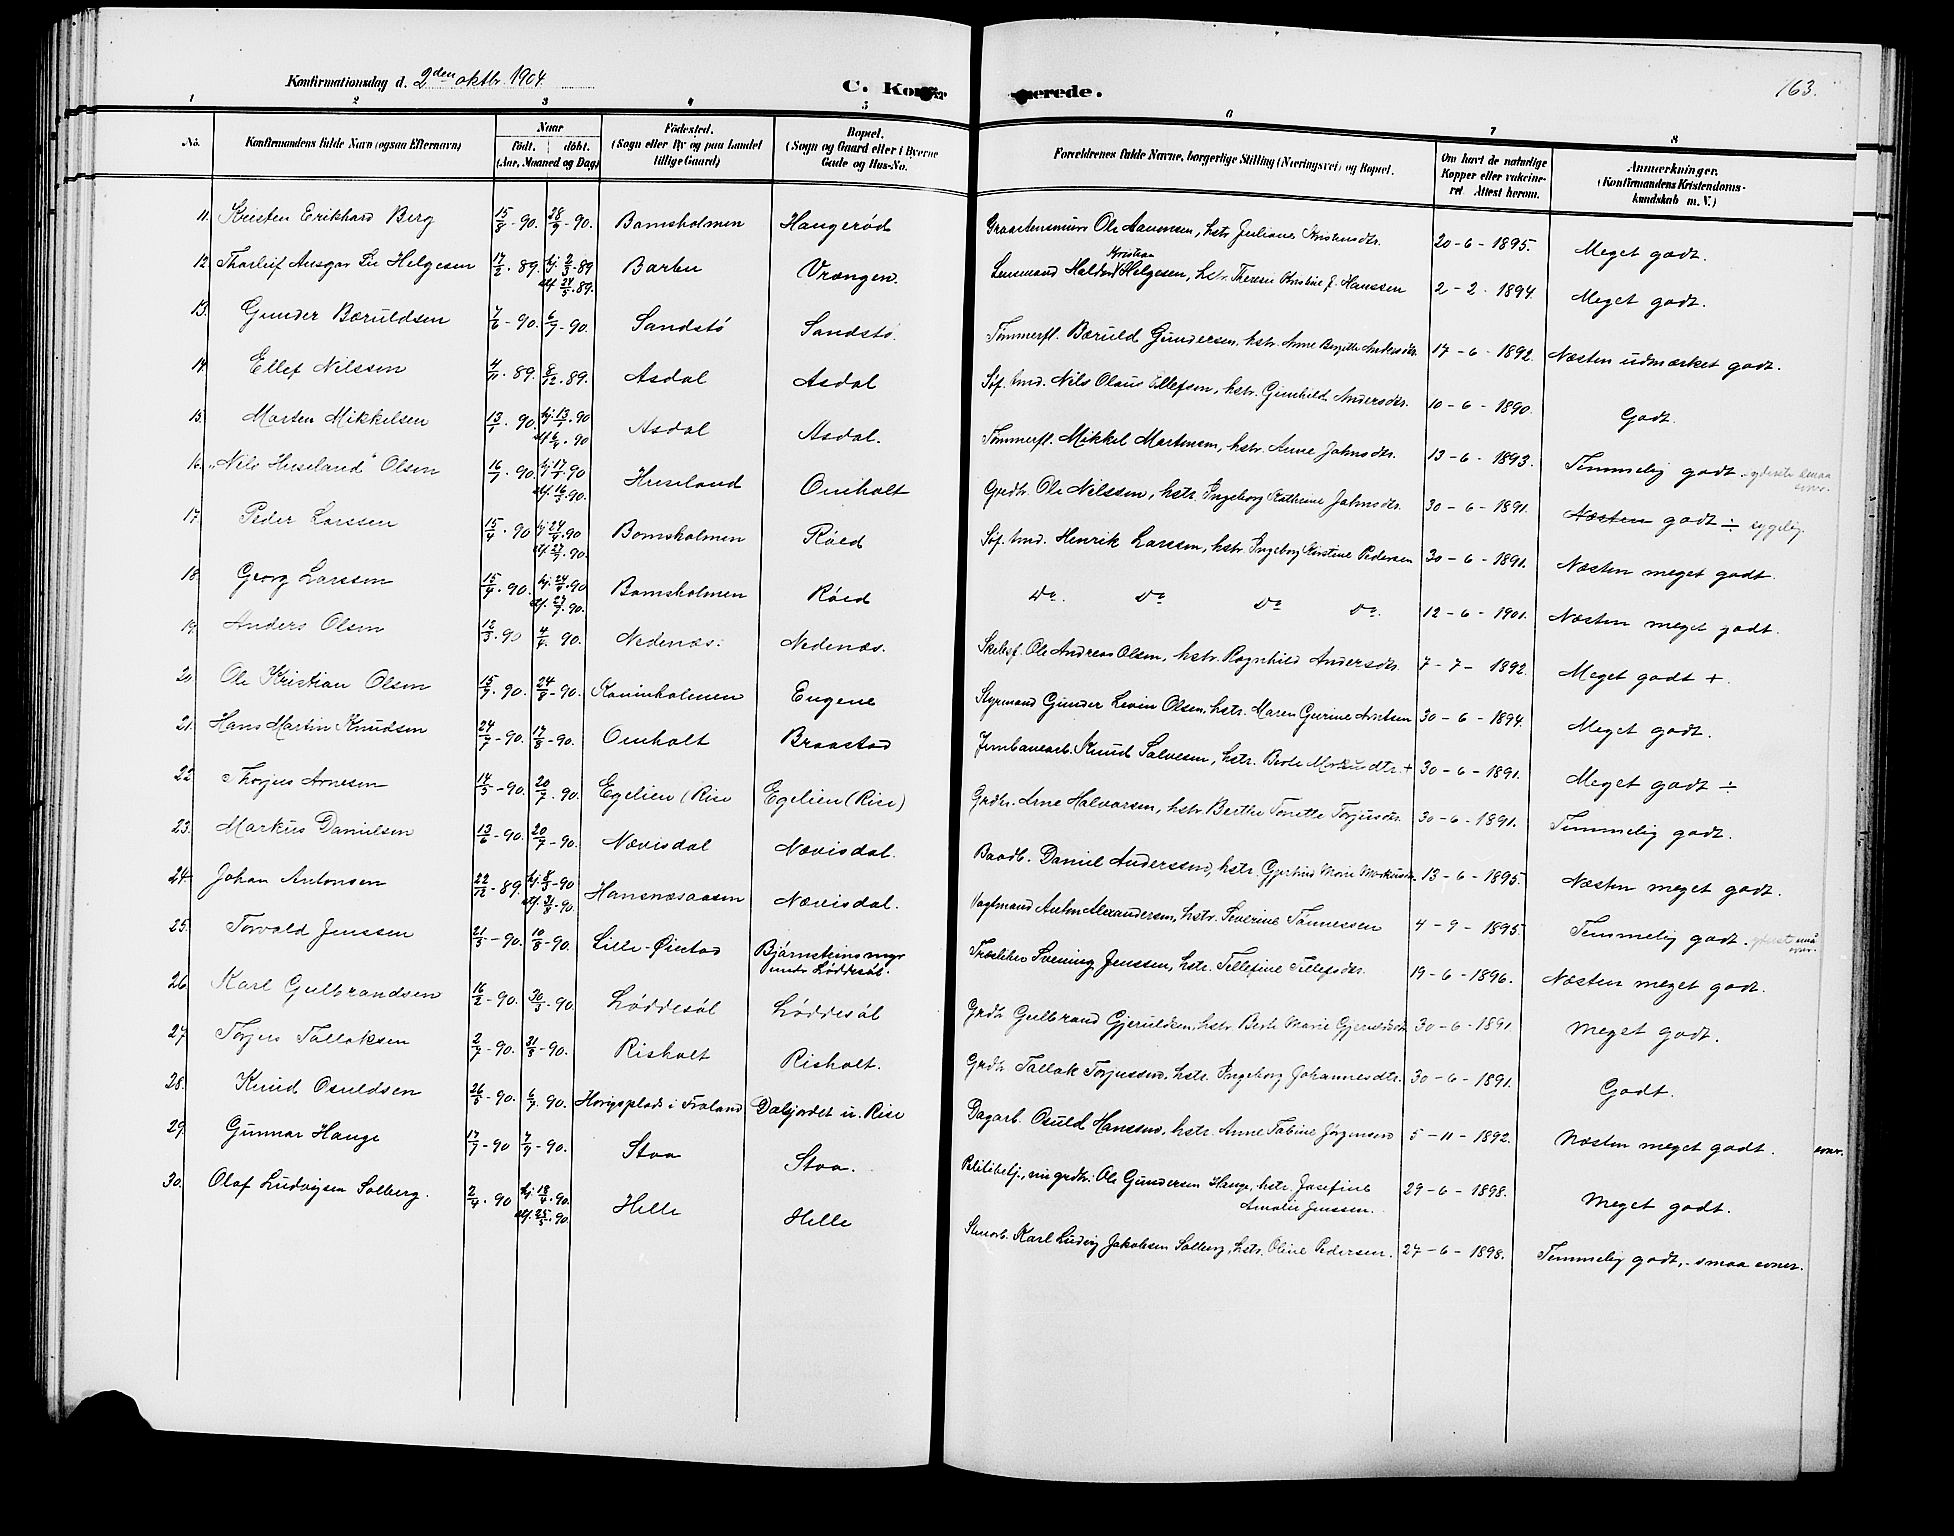 Konfirmationsdag d. 2den oktbr. 1904.
C. Konfirmerede.
163.
1 2 3 4 5 6 7 8
No.
Konfirmandens fulde Navn (ogsaa Efternavn)
Naar
Födt. döbt.
(Aar, Maaned og Dag)
Födested.
(Sogn eller By og paa Landet
tillige Gaard)
Bopæl.
(Sogn og Gaard eller i Byerne
Gade og Hus-No.
Forældrenes fulde Navne, borgerlige Stilling (Næringsvei) og Bopæl.
Om havt de naturlige
Kopper eller vakcine-
ret Attest herom.
Anmerkninger.
(Konfirmandens Kristendoms-
kundskab m. V.)
11. Kristen Erikhard Berg 15/8-90. 28/9-90. Bomsholmen Haugeröd Ole Aanonsen, hstr. Juliane Kristensdtr. 20-6-1895. Meget godt.
12. Thorleif Ansgar Lie Helgesen 17/2.89. hj. 2/3.89 Barbu Vrængen. Lensmand Haldor Kristian Helgesen, hstr. Therese Kristine J. Hanssen 2-2-1894. Meget godt.
kf. 24/3.89.
13. Gunder Bæruldsen 7/6-90. 6/7-90. Sandstö Sandstö. Tømmerfl. Bæruld Gundersen, hstr. Anne Birgitte Andersdtr. 17-6-1892. Næsten udmærket godt.
14. Ellef Nilssen 4/11.89. 8/12.89. Asdal Asdal Søf. Nils Olaus Ellefsen, hstr. Gunhild Andersdtr. 10-6-1890. Godt.
15. Morten Mikkelsen 13/1.90. hj. 13/1.90 Asdal Asdal. Tømmerfl. Mikkel Martinsen, hstr. Anne Johnsdtr. 13-6-1893. Temmelig godt - yderst smaa evner.
16. "Nils Huseland" Olsen 16/7.90. hj. 17/7.90 Huseland Omholt Grdbr. Ole Nilssen, hstr. Ingeborg Kathrine Johnsdtr. 30-6-1891. Næsten godt ÷ sygelig.
17. Peder Larssen 15/4.90 hj. 24/4.90 Bomsholmen Röed Søf. Henrik Larssen, hstr. Ingeborg Kirstine Pedersen 30-6-1891. Næsten meget godt.
18. Georg Larssen 15/4.90. hj. 24/4.90 Bomsholmen Röed Do. Do Do Do. 12-6-1901. Næsten meget godt.
19. Anders Olsen 4/4.90. Nedenæs. Nedenæs. Ole Andreas Olsen, hstr. Ragnhild Andersdtr. 7-7-1892. Meget godt +.
20. Ole Kristian Olsen 15/7.90. 24/8-90. Eugene Styrmand Gunder Levin Olsen, hstr. Maren Gurine Arntsen 30-6-1894. Meget godt.
21. Hans Martin Knudsen 24/7-90. 17/8-90. Omholt Braastad Jernbanearb. Knud Salvesen, hstr. Berte + 30-6-1891. Meget godt ÷
22. Thorjus Arnesen 14/5-90. 20/7.90. Egelien (Rise Egelien (Rise) Grdbr. Arne Halvorsen, hstr. Berthe Tonette Torjusdtr. 30-6-1891. Temmelig godt.
23. Markus Danielsen 13/6-90. 20/7-90. Nævisdal Nævisdal. Baadb. Daniel Anderssen, hstr. Gjertine Marie Markusdtr. 13-6-1895. Næsten meget godt.
24. Johan Antonsen 22/12-89. hj. 8/3-90 Hansnæsaasen Nævisdal. Vagtmand Anton Alexandersen, hstr. Severine Tönnessen 4-9-1895. Temmelig godt. yderst små evner.
25. Torvald Jenssen 21/5-90. 10/8-90. Lille-Öiestad Bjørnsteinsmyr Svening Jenssen, hstr. Tellefine Tellefsdtr. 19-6-1896. Næsten meget godt.
under Löddesöl.
26. Karl Gulbrandsen 16/2-90. 30/3-90. Löddesöl Löddesöl Grdb. Gulbrand Gjeruldsen, hstr. Berte Marie Gjeruldsdtr. 30-6-1891 Meget godt.
27. Torjus Tallaksen 2/7-90. 31/8-90. Risholt Risholt. Grdb. Tallak Torjussen, hstr. Ingeborg Johannesdtr. 30-6-1891. Godt.
28. Knud Osuldsen 26/5-90. 6/7.90. i Froland u. Rise Dagarb. Osuld Hanssen, hstr. Anne Tabine Jørgensen 5-11-1892. Næsten meget godt.
29. Gunnar Hauge 17/7-90 7/9-90. Stoa Stoa. nu grdbr. Ole Gundersen Hauge, hstr. Josefine 29-6-1898. Meget godt.
Amalie Jenssen.
30. Olaf Ludvigsen Solberg. 2/4.90 hj. 18/4.90. Helle Helle Karl Ludvig Jakobsen Solberg, hstr. Oline Pedersen. 27-6-1898. Temmelig godt, - smaa evner.
kf. 25/5.90.
evner.